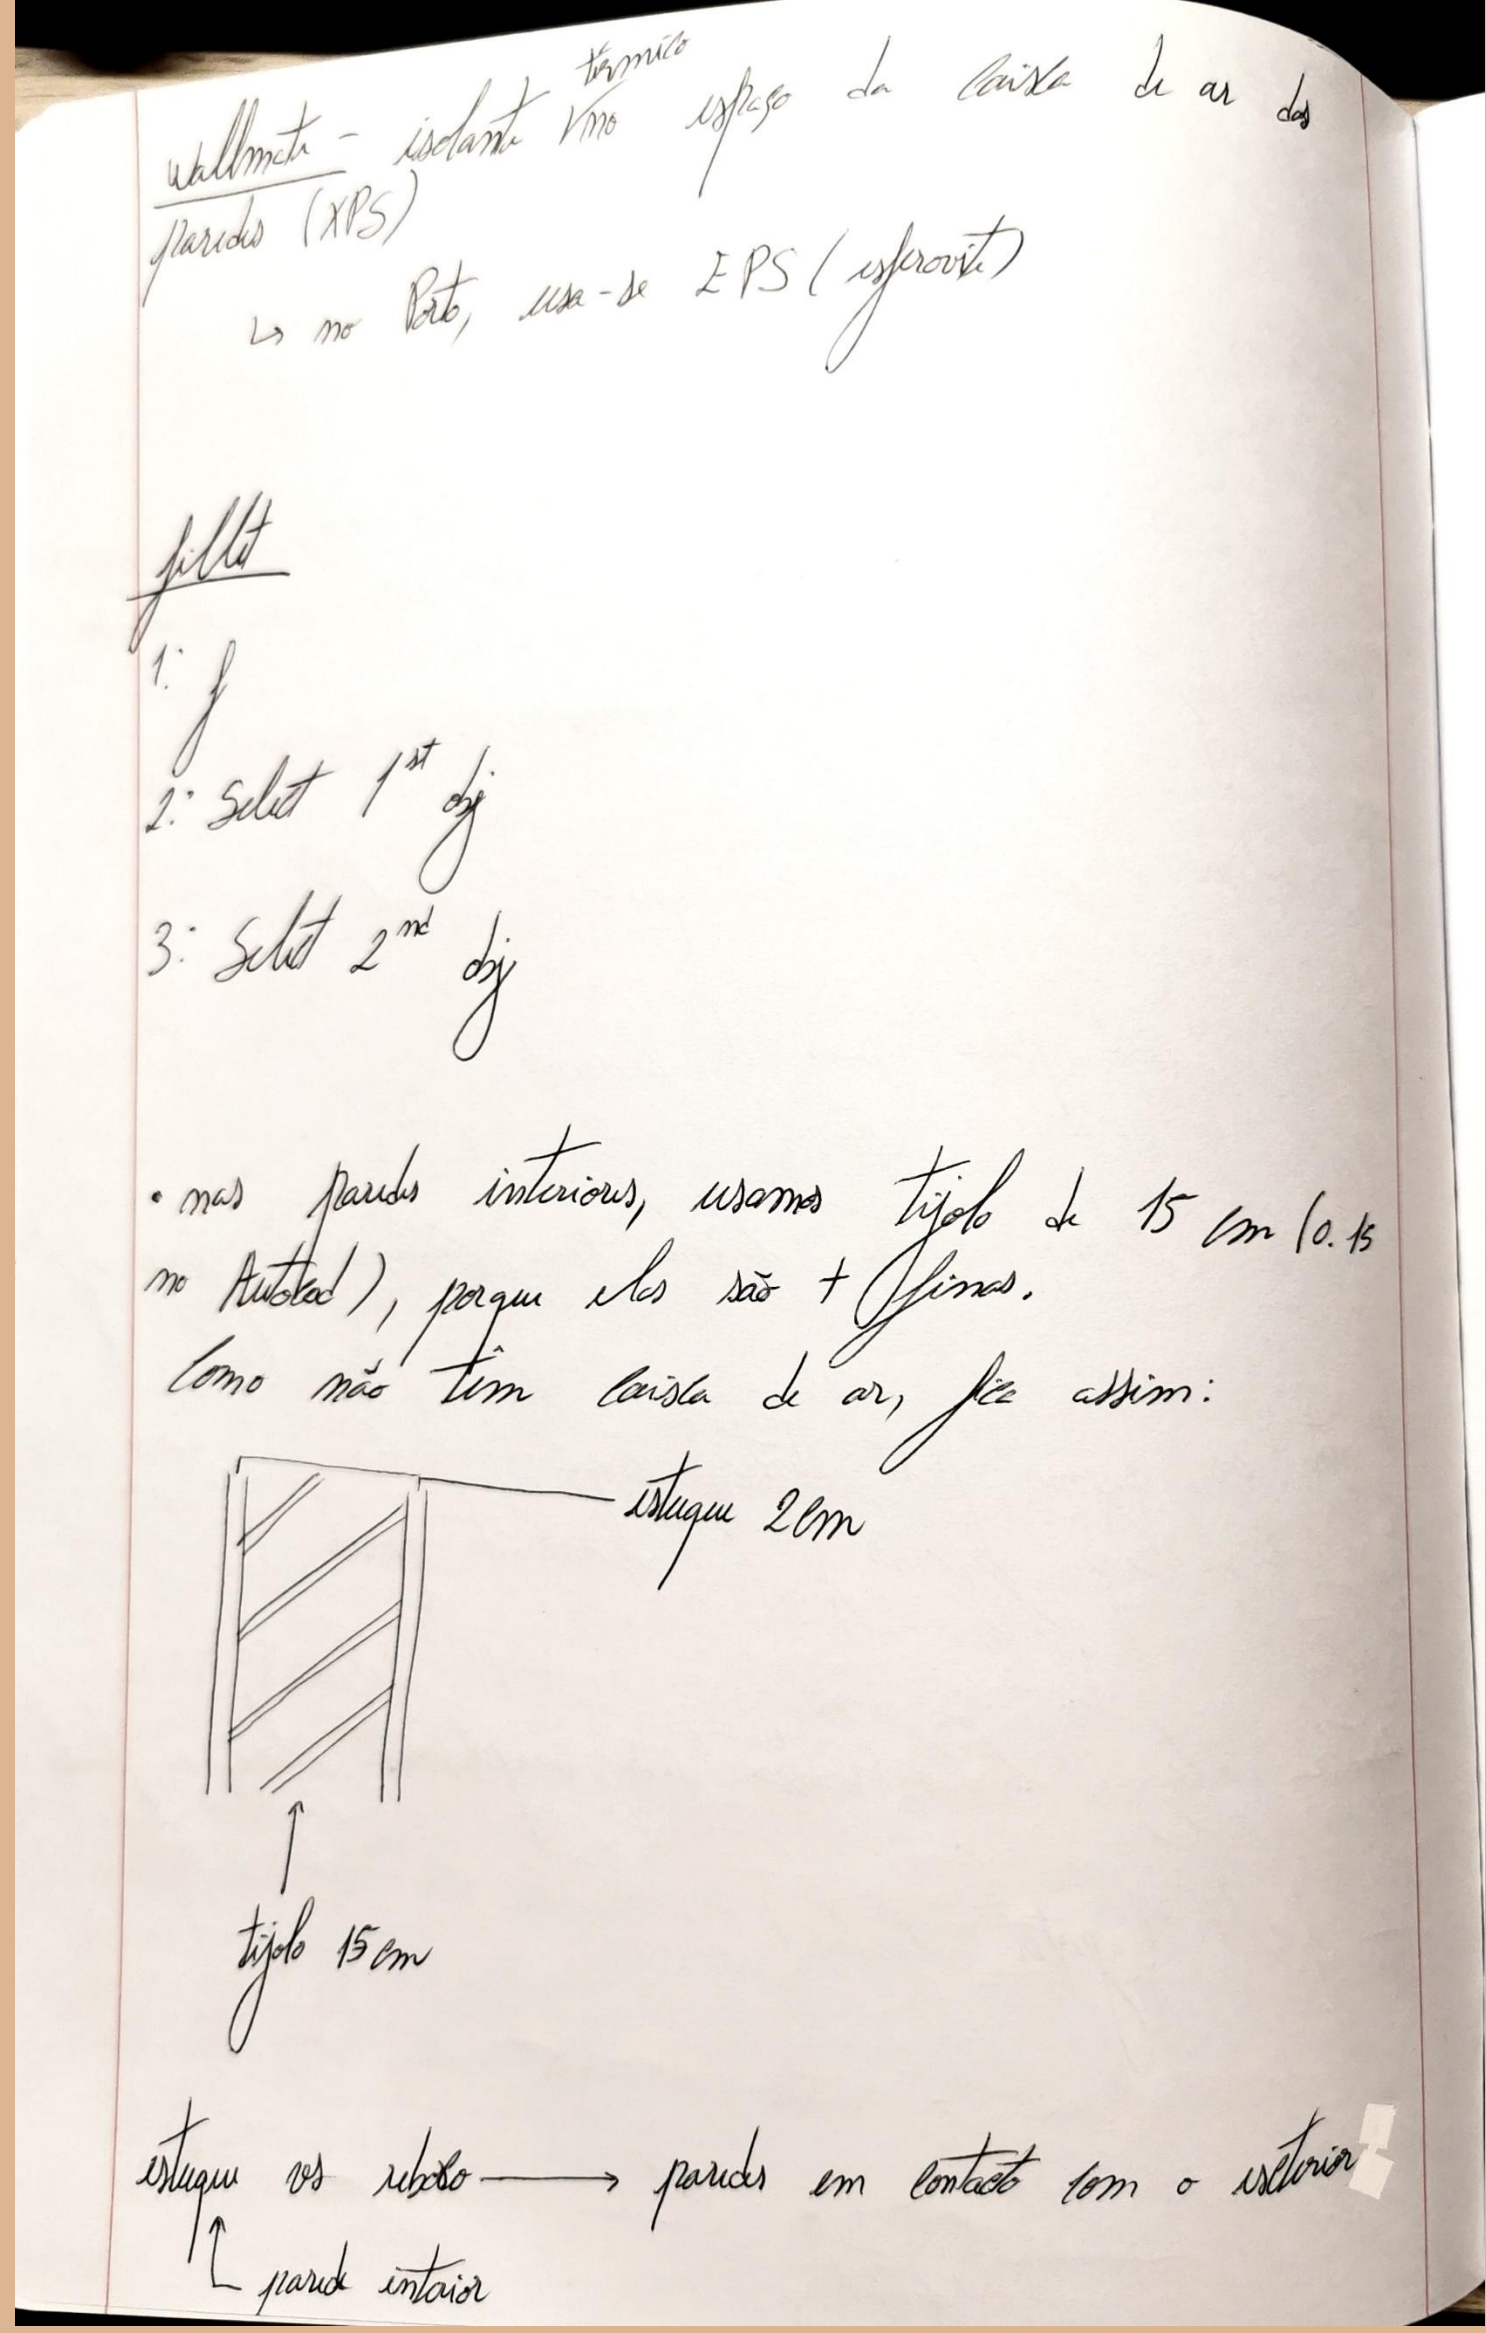 wallmate - isolante térmico no espaço da caixa de ar das
paredes (XPS)
↳ no Porto, usa-se EPS (esferovite)
fillet
1: f
2: Select 1st obj
3: Select 2nd obj
• nas paredes interiores, usamos tijolo de 15 cm (0.15
no Autocad), porque elas são + finas.
Como não têm caixa de ar, fica assim:
estuque 2cm
tijolo 15cm
estuque vs reboco → paredes em contacto com o exterior
parede interior